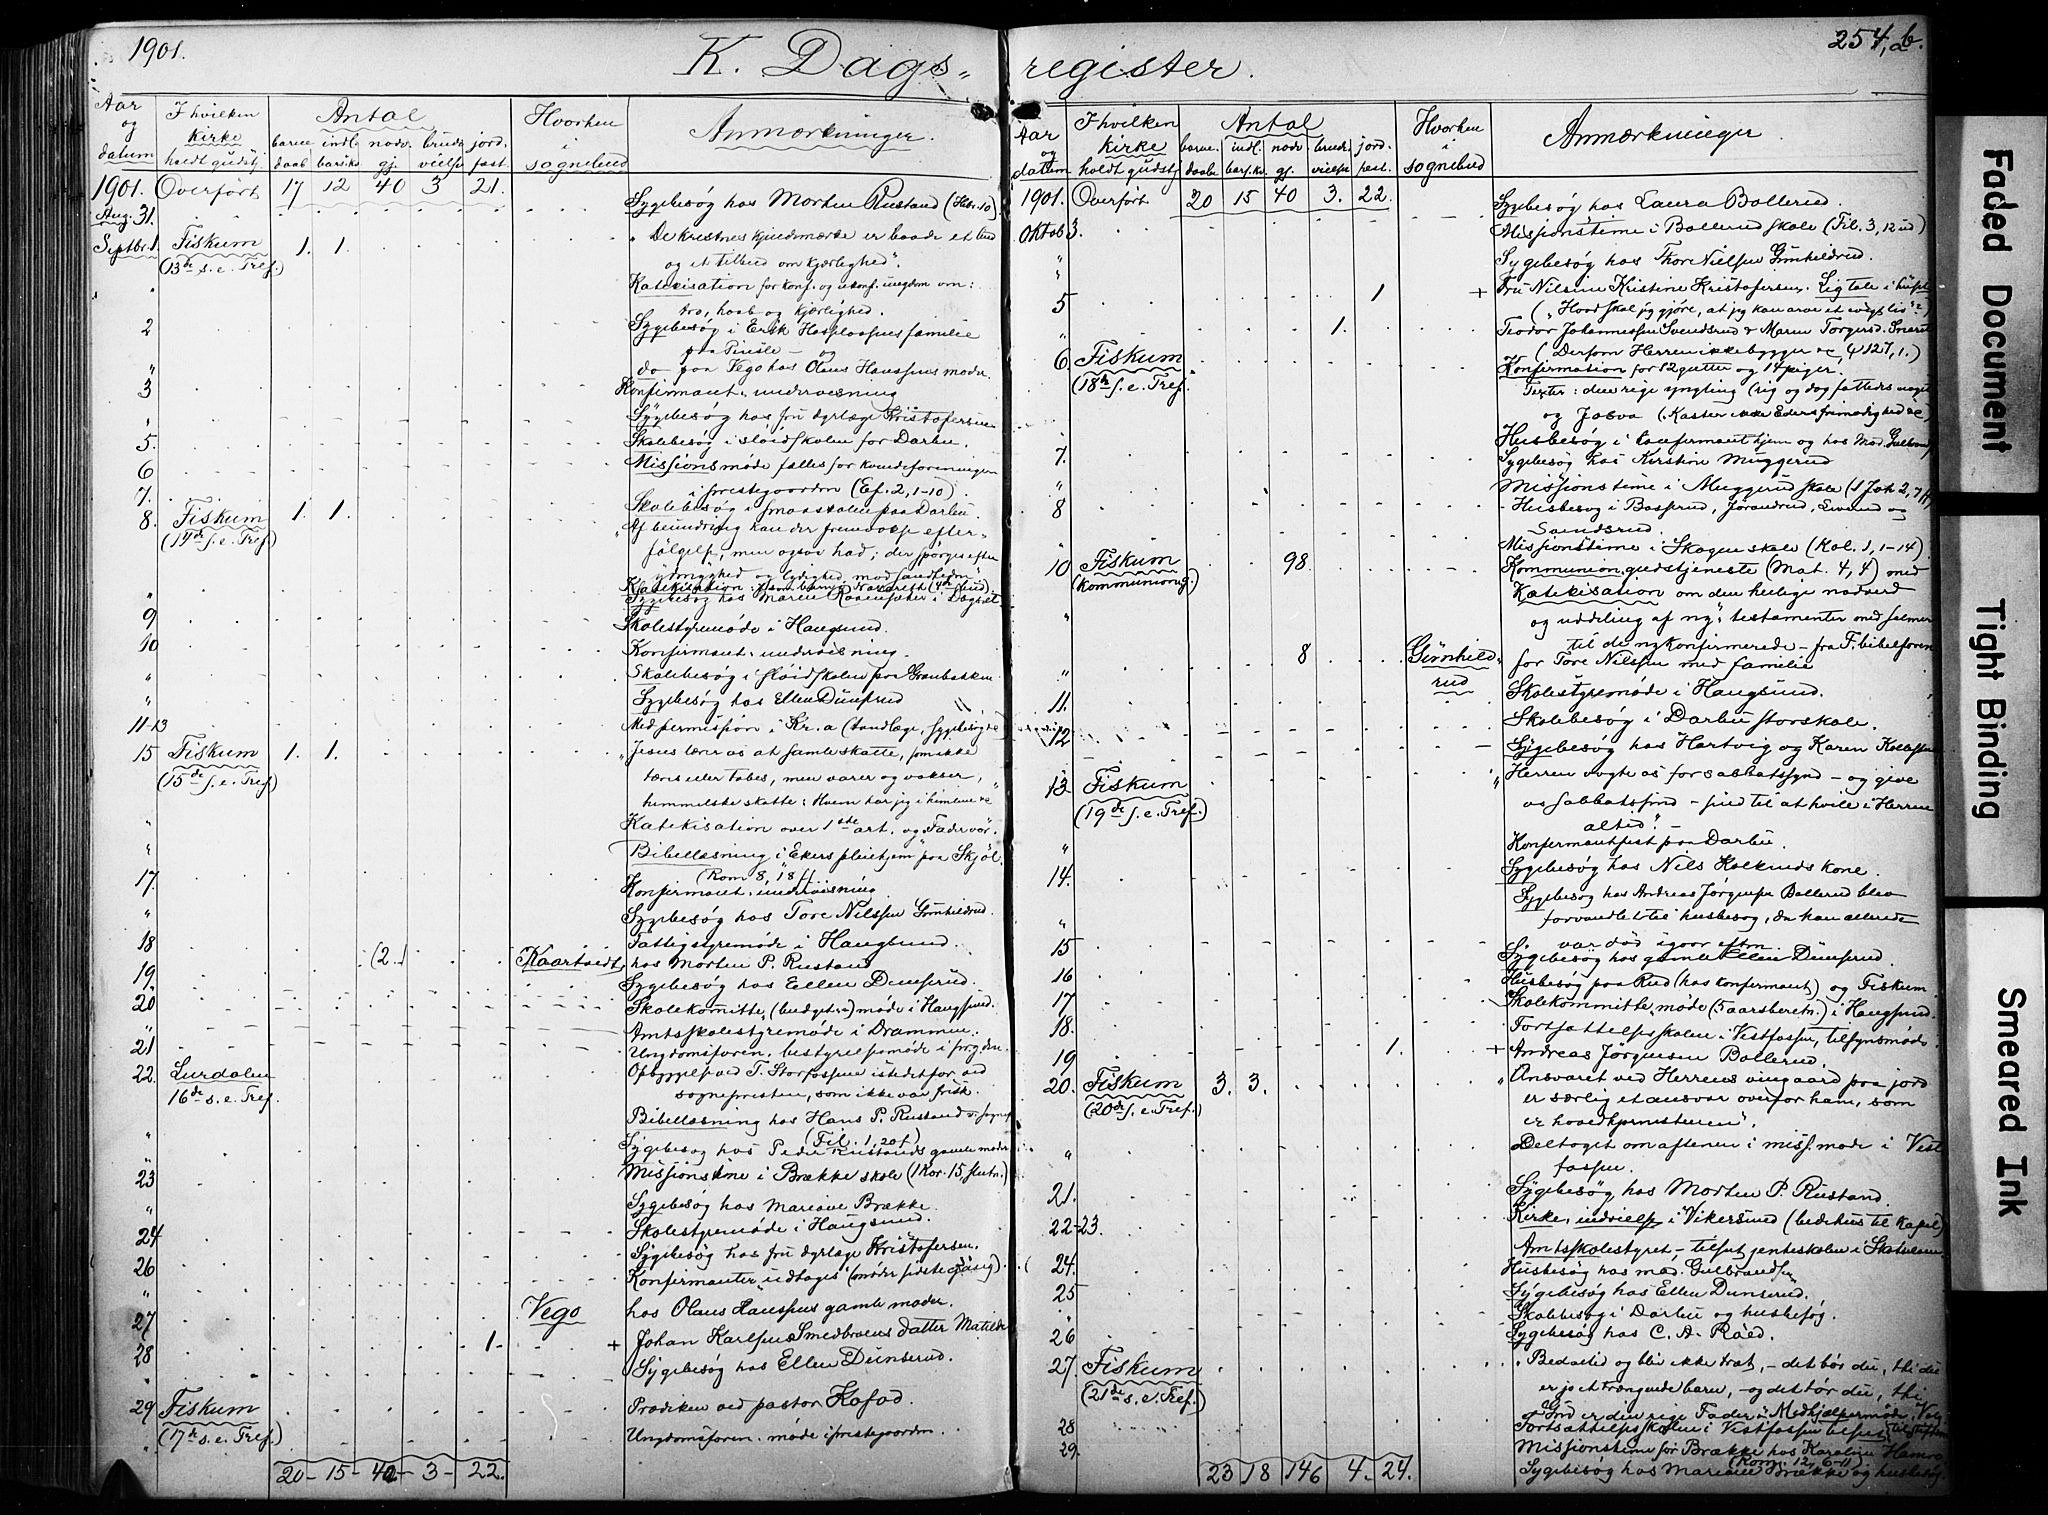 1901.
K. Dags-
Aar og datum
I hvilken kirke holdt gudstj.
Antal
barne daab
indl. barselk.
nadv. gj.
brude vielse
jord. fest.
Hvorhen i sognebud
Anmærkninger.
1901. Overført 17 12 40 3 21.
Aug. 31. Sygebesøg hos Morten Rustand (Hebr. 10)
Septbr. 1. Fiskum 1. 1. "De kristnes kjendemærke er baade et bud
(13de s. e. Tref.) og et tilbud om kjærlighed".
" Katekisation for konf. og ukonf. ungdom om:
tro, haab og kjærlighed.
2 Sygebesøg i Erik familie
paa og
" do paa Vego hos Olaus Hanssens moder.
3 Konfirmant-undervisning
" Sygebesøg hos fru dyrlæge Kristofersen
5. Skolebesøg i sløidskolen for Darbu.
6 Missionsmøde fælles for kvindeforeningen
i prestegaarden (Ef. 2, 1-10).
7. Skolebesøg i smaaskolen paa Darbu.
8. Fiskum 1. 1. "Af beundring kan der fremvokse efter-
(14de s. e. Tref.) følgelse, men ogsaa had; der spørges efter
ydmyghed og lydighed mod sandheden"
" Katekisation:
9 Sygebesøg hos Maren
Skolestyremøde i Haugsund.
10 Konfirmant-undervisning.
" Skolebesøg i sløidskolen paa Grønbakken
" Sygebesøg hos Ellen Dunserud
11-13 Med permission i Kr.a (tandlæge, sygebesøg &c
15 Fiskum 1. 1. "Jesus lærer os at samle skatte, som ikke
(15de s. e. Tref.) tæres eller tabes, men varer og vokser,
himmelske skatte: Hvem har jeg i himlene &c"
" Katekisation over 1ste art. og Fadervor.
" Bibellæsning i Ekers pleiehjem paa Skjøl
(Rom 8, 18 ff)
17. Konfirmant-undervisning
" Sygebesøg hos Tore Nilssen Gunhildrud.
18 Fattigstyremøde i Haugsund.
19 (2.) Kaartvedt, hos Morten P. Rustand
20 Sygebesøg hos Ellen Dunserud
Skolekomitte, (budget-) møde i Haugsund.
" Amtsskolestyremøde i Drammen.
21 Ungdomsforen. bestyrelsesmøde i prgden.
22. Lurdalen Opbyggelse ved T. Storfossen istedetfor ved
16de s. e. Tref. sognepresten, som ikke var frisk.
Bibellæsning hos Hans P. Rustand
(Fil. 1, 20 f)
" Sygebesøg hos Peder Rustands gamle moder
23 Missionstime i Brække skole (1 Kor. 15, slutn.)
" Sygebesøg hos Mariane Brække.
24 Skolestyremøde i Haugsund.
Sygebesøg hos fru dyrlæge Kristofersen.
26 Konfirmanter udtages (møder sidste gang).
27 Vego hos Olaus Hanssens gamle moder.
28 1. + Johan Karlsen Smedbraatens datter Matilde
Sygebesøg hos Ellen Dunserud.
29 Fiskum Prædiken ved pastor Kafod.
(17de s. e. Tref.) Ungdomsforen. møde i prestegaarden.
20- 15- 42- 3- 22.
register.
254, b.
Aar og datum
I hvilken kirke holdt gudstj.
Antal
barne daab
indl. barselk.
nadv. gj.
brude vielse
jord. fest.
Hvorhen i sognebud
Anmærkninger
1901. Overført 20 15 40 3. 22.
Sygebesøg hos Laura Bollerud.
Oktob 3. Missionstime i Bollerud skole (Fil. 3, 12 ud)
" Sygebesøg hos Thore Nielsen Gunhildrud.
5 1 + Fru Nilsine Kristine Kristofersen. Ligtale i huset
("Hvad skal jeg gjøre, at jeg kan arve et evigt liv"?)
" 1. Teodor Johannessen Svendsrud & Maren Torgersd. Snaret
(Dersom Herren ikke bygger &c, ψ 127, 1.)
6. Fiskum Konfirmation for 12 gutter og 14 piger.
(18de s. e. Tref. Texter: den rige yngling (rig og dog fattedes noget)
og Josva (Kaster ikke Eders frimodighed &c)
7. Husbesøg i konfirmanthjem og hos Mad. Gulbrands.
" Sygebesøg hos Kirstine Muggerud
Missionstime i Muggerud skole (1 Joh 2, 7 ff)
8 Husbesøg i Basserud, Jørandrud, og
Sandsrud.
Missionstime i Skogen skole (Kol. 1, 1-14)
10 Fiskum 98. Kommunion gudstjeneste (Mat. 4, 4) med
(kommuniong.) Katekisation om den hellige nadverd
" og uddeling af ny-testamenter med salmer
til de nykonfirmerede - fra F. bibelforen
" 8 Gunhild-rud for Tore Nilssen med familie
11. Skolestyremøde i Haugsund.
12 Skolebesøg i Darbu storskole.
Sygebesøg hos Hartvig og Karen
13 Fiskum "Herren vogte os for sabbatssynd - og give
(19de s. e. Tref.) os sabbatsfred - fred til at hvile i Herren
altid". -
" Konfirmantfest paa Darbu.
14. Sygebesøg hos Nils kone.
Sygebesøg hos Andreas Jørgensen Bollerud blev
" forvandlet til husbesøg, da han allerede
var død igaar eftm.
15 Sygebesøg hos gamle Ellen Dunserud.
16 Husbesøg paa Rud (hos konfirmant) og Fiskum.
17 Skolekommitte, møde (5aarsberetn.) i Haugsund.
18. Fortsættelsesskolen i Vestfossen, tilsynsmøde
19 1. + Andreas Jørgensen Bollerud.
20. Fiskum 3. 3. "Ansvaret ved Herrens vingaard paa jord
(20de s. e. Tref.) er særlig et ansvar overfor ham, som
er hovedhjørnestenen".
" Deltaget om aftenen i miss. møde i Vest
fossen.
21. Sygebesøg hos Morten P. Rustand.
22-23. Kirke-indvielse i Vikersund (bedehus til kapel)
24. Amtsskolestyret - tilsyn, jenteskolen i Skotselven
Husbesøg hos mad. Gulbrandsen
25 Sygebesøg hos Ellen Dunserud.
" Skolebesøg i Darbu og husbesøg.
26 Sygebesøg hos C. A. Raed.
27. Fiskum "Bed altid og bliv ikke træt, - det bør du, thi du
(21de s. e. Tref.) er jo et trængende barn, - og det tør du, thi
Gud er den rige Fader". Medhjælpermøde,
28 Fortsættelsesskolen i Vestfossen tilsyn
29. Missionstime for Brække hos Karoline
(Rom. 12, 6-11).
Sygebesøg hos Mariane Brække og husbesøg
23 18 146 4. 24.
Faded Document
Tight Binding
Smeared Ink